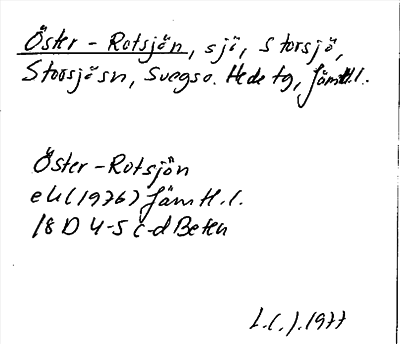 Öster-Rotsjön, sjö, Storsjö,
Storsjösn, Svegso. Hede tg, Jämtl.l.
Öster-Rotsjön
ek (1976) Jämtl.l.
18 D 4-5 c-d Beten
L.C.J. 1977